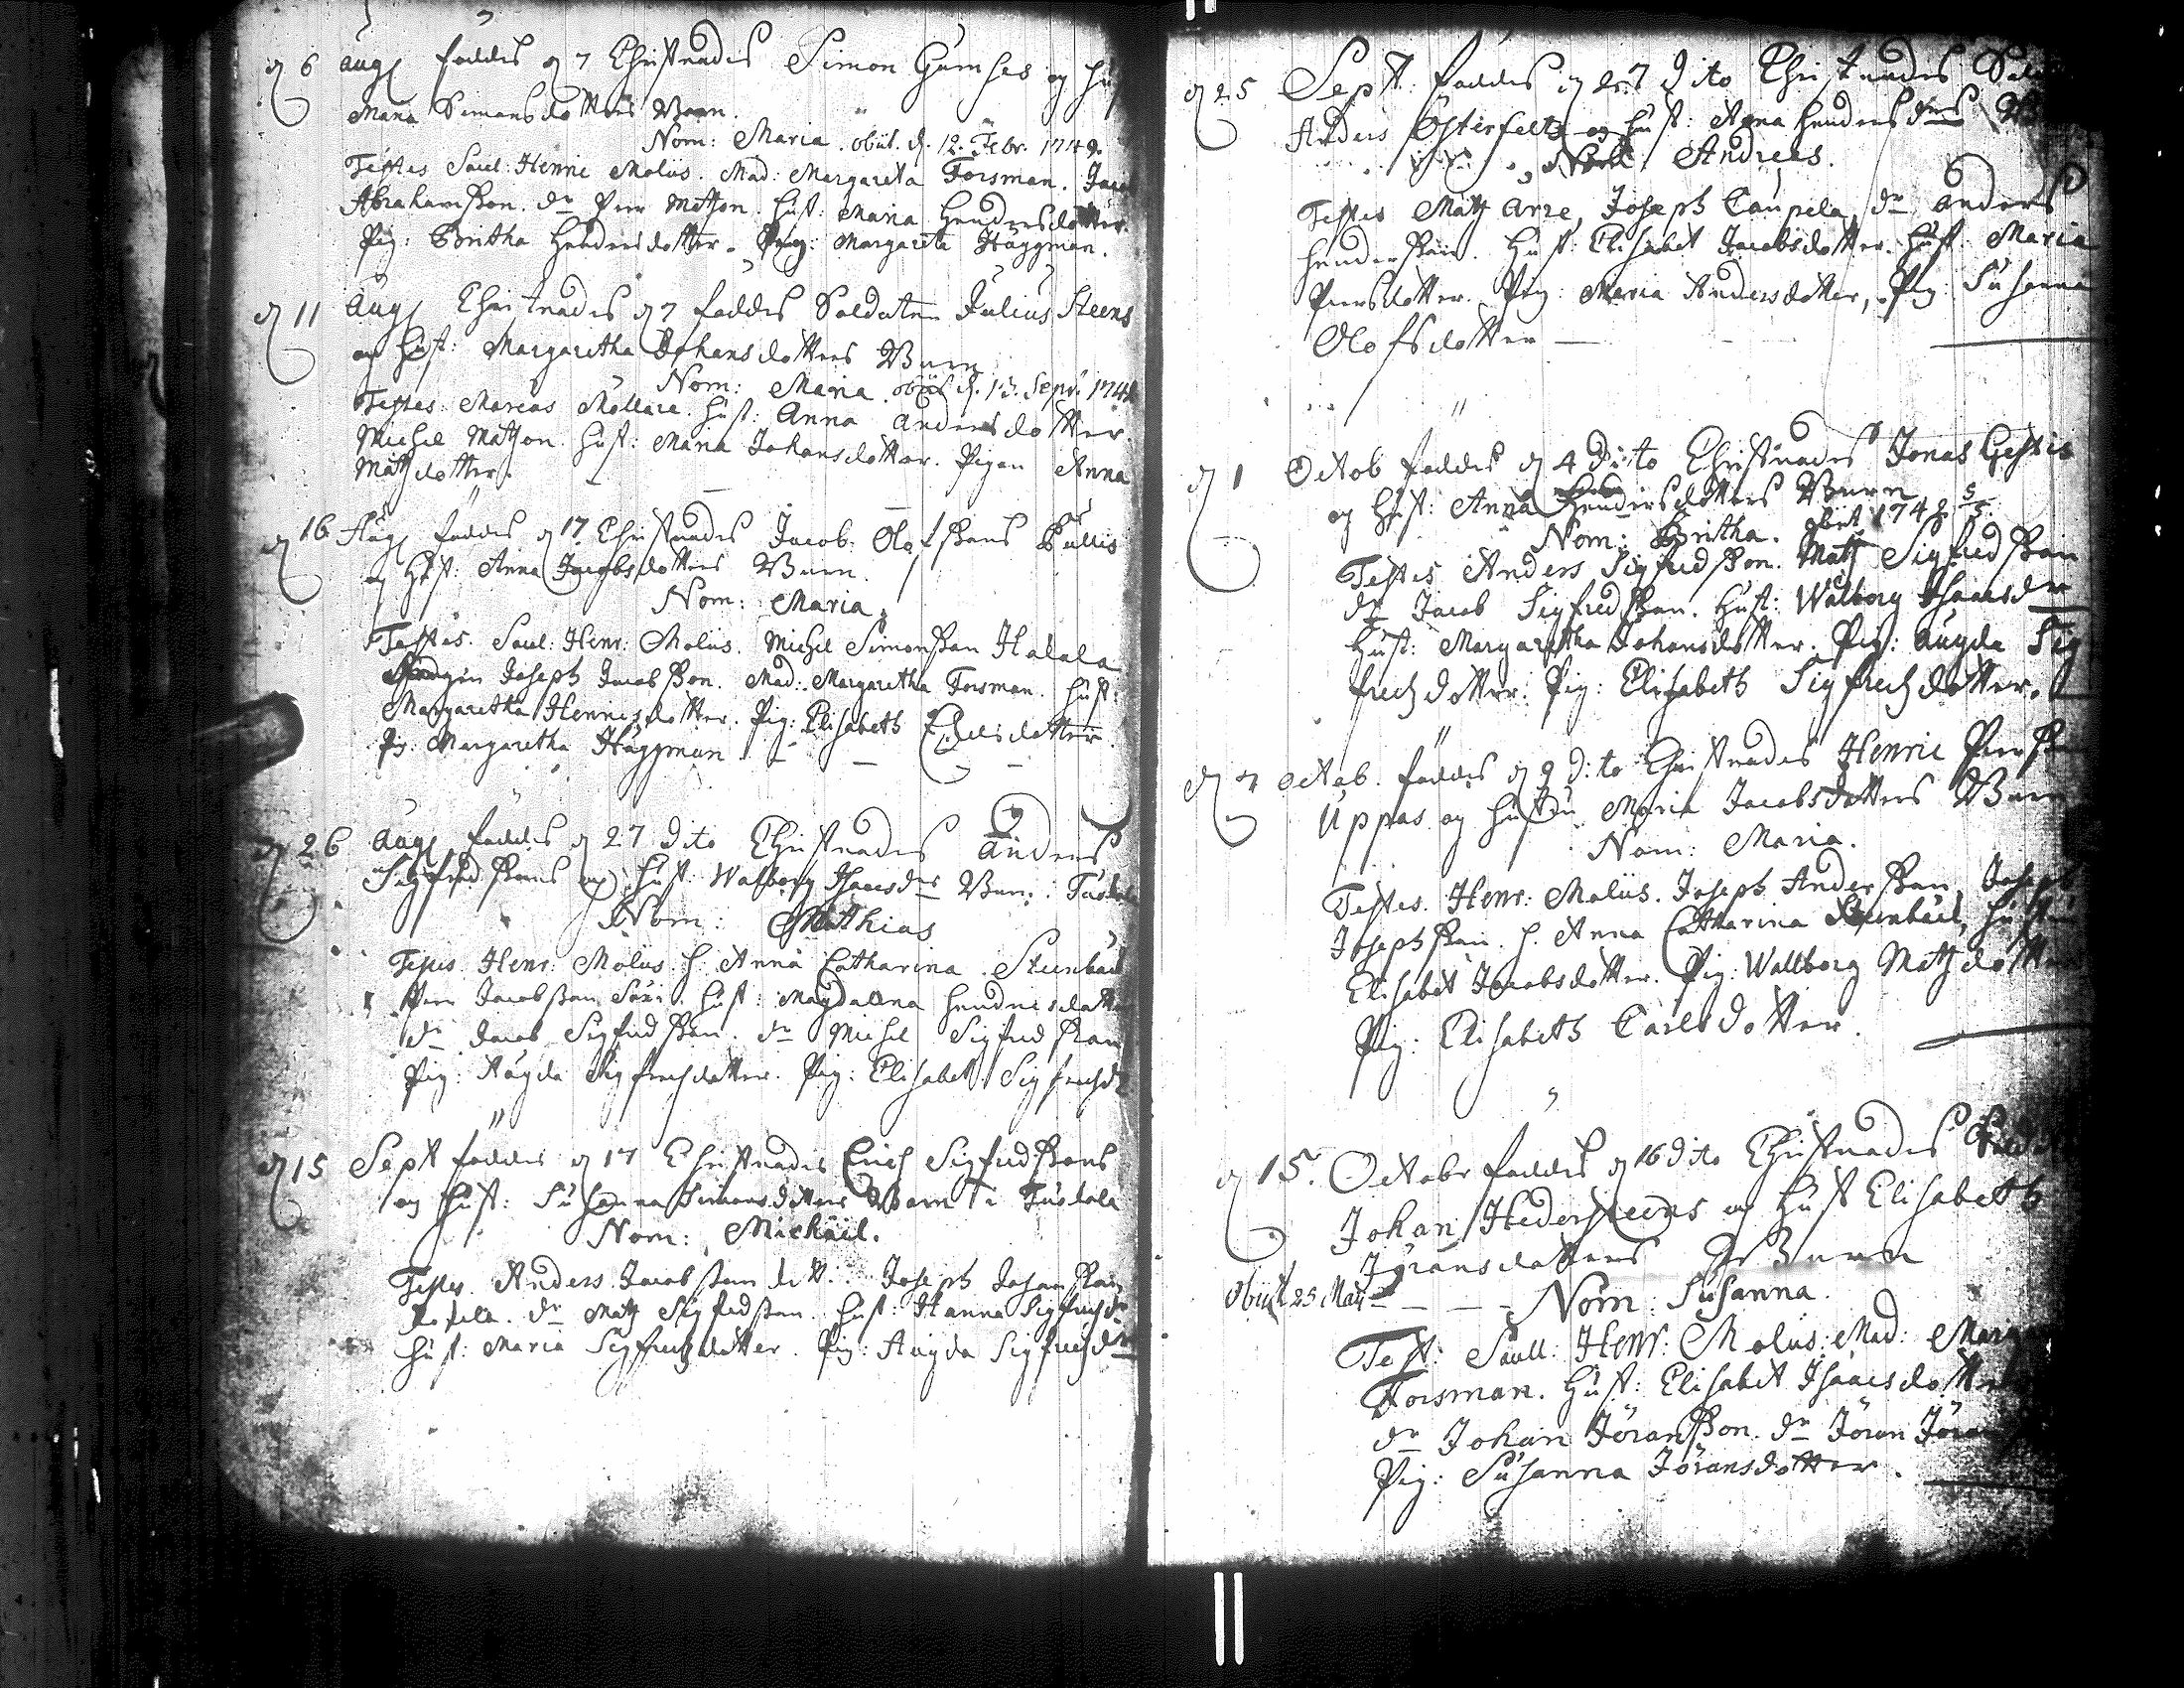 d 6 Aug föddes d 7 Christnades Simon Gumses og hu
Maria Simonsdotters Barn.
Nom: Maria. obiit. d. 12. Febr. 1749.
Testes Saul: Henric Molius. Mad: Margareta Forsman. Jaco
Abrahamsson. dr Pier Matson. hust: Maria Hendersdotter
Pig: Britha Hendersdotter. Pig: Margareta Häggman.
d 11 Aug Christnades d 7 föddes Soldaten Julius Steens
og hust: Margaretha Johansdotters Barn
Nom: Maria obiit d. 13. Sept. 174
Testes: Marcus Mollare. hust: Anna Andersdotter.
Michel Matson. hust: Maria Johansdotter. Pigan Anna
Matsdotter.
d 16 Aug föddes d 17 Christnades Jacob Olofssons Pullis
og Hust: Anna Jacobsdotters Barn.
Nom: Maria.
Testes. Saul: Henr: Molius. Michel Simonsson Halala
Drängen Joseph Jacobsson. Mad: Margaretha Forsman. hust:
Margaretha Henricsdotter. Pig: Elisabeth
Pig: Margaretha Häggman
d 26 Aug föddes d 27 dito Christnades Anders
Sigfredssons og Hust: Walborg Isaacsdrs Barn.
Nom: Mathias
Testes Henr: Molius. h Anna Catharina Steenbäck
Pier Jacobsson. hust: Magdalena Hendricsdotter
dr Jacob Sigfredsson. dr Michel Sigfredsson
Pig: Augda Sigfredsdotter. Pig: Elisabet Sigfredsd
d 15 Sept föddes d 17 Christnades Erich Sigfredssons
og Hust: Susanna Simonsdotters Barn i Tuskala
Nom: Michäel.
Testes. Anders Jacobsson. Joseph Johansson
dr Mats Sigfredsson. hust: Hanna Sigfredsdr
Hust: Maria Sigfredsdotter. Pig: Augda Sigfredsdr
d 25 Sept. föddes d 27 dito Christnades Sol
Anders Österfelts og hust: Anna Hendersdrs B
Nom: Andreas.
Testes Mats Arre, Joseph Caupela, dr Anders
Hendersson. Hust: Elisabet Jacobsdotter. hust: Maria
Piersdotter. Pig: Maria Andersdotter, Pig: Susanna
Olofsdotter
d 1 Octob föddes d 4 dito Christnades Jonas
og Hust: Anna Hendersdotters Barn
Nom: Britha. obiit 1748 5/5.
Testes Anders Sigfredsson. Mats Sigfredsson
dr Jacob Sigfredsson. Hust: Walborg Isaacsdr
Hust: Margaretha Johansdotter. Pig: Augda Sig
fredsdotter. Pig: Elisabeth Sigfredsdotter.
d 7 Octob. föddes d 9 dito Christnades Henric Piers
Uppas og Hustru Maria Jacobsdotters Barn
Nom: Maria.
Testes. Henr: Molius. Joseph Andersson, Joseph
Josephsson. h. Anna Catharina Steenbäck, Hust
Elisabet Jacobsdotter. Pig: Wallborg Matsdotter
Pig: Elisabeth Carlsdotter.
d 15. Octobr föddes d 16 dito Christnades Sold
Johan Hedersteens og Hust Elisabeth
Jöransdotters Barn
Obiit 25 Maii Nom: Susanna.
Test: Saull: Henr: Molius: Mad: Marga
Forsman. Hust: Elisabet Isaacsdotter
dr Johan Jöransson. dr Jöran Jöran
Pig: Susanna Jöransdotter.